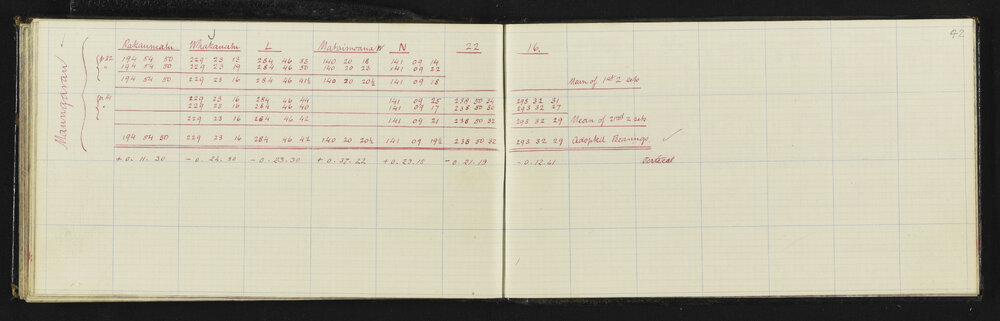 42
Rakaumatu Whakanatu L Mataimoana N 22 16.
p 32 194 54 50 229 23 13 284 46 33 140 20 18 141 09 14
" 194 54 50 229 23 19 284 46 50 140 20 23 141 09 22
194 54 50 229 23 16 284 46 41½ 140 20 20½ 141 09 18 Mean of 1st 2 sets
229 23 16 284 46 44 141 09 25 238 50 34 293 32 31
" 229 23 16 284 46 40 141 09 17 238 50 30 293 32 27
229 23 16 284 46 42 141 09 21 238 50 32 293 32 29 Mean of 2nd 2 sets
194 54 50 229 23 16 284 46 42 140 20 20½ 141 09 19½ 238 50 32 293 32 29 Adopted Bearings
+ 0. 11. 30 - 0. 24. 30 - 0. 23. 30 + 0. 32. 22 + 0. 23. 15 - 0. 21. 19 - 0. 12. 41 Vertical